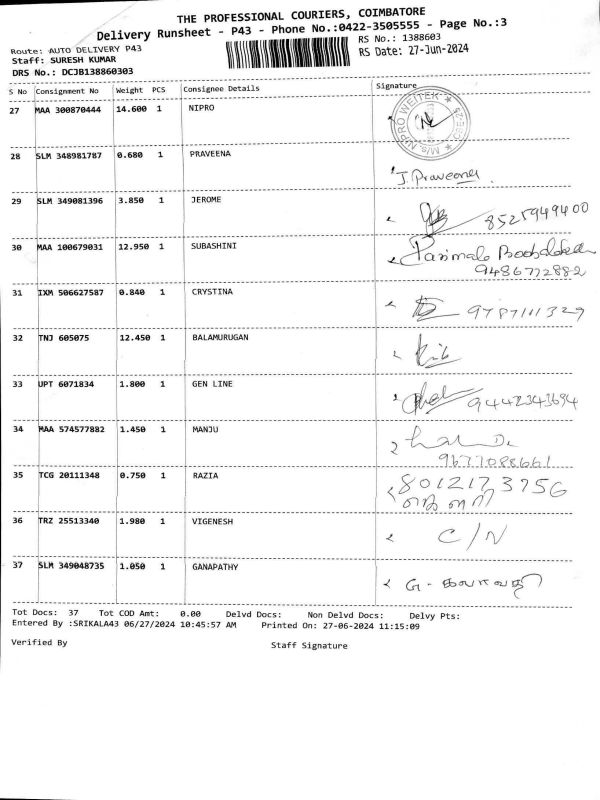 THE PROFESSIONAL COURIERS, COIMBATORE
Delivery Runsheet - P43 - Phone No.:0422-3505555 - Page No.:3
Route: AUTO DELIVERY P43
Staff: SURESH KUMAR
DRS No.: DCJB138860303
RS No.: 1388603
RS Date: 27-Jun-2024
S No Consignment No Weight PCS Consignee Details Signature
27 MAA 300870444 14.600 1 NIPRO
M/s. NIPRO WEITEK
28 SLM 348981787 0.680 1 PRAVEENA J. Praveena
29 SLM 349081396 3.850 1 JEROME 8525949400
30 MAA 100679031 12.950 1 SUBASHINI Parimala
9486772882
31 IXM 506627587 0.840 1 CRYSTINA 9787111329
32 TNJ 605075 12.450 1 BALAMURUGAN
33 UPT 6071834 1.800 1 GEN LINE 9442343694
34 MAA 574577882 1.450 1 MANJU
9677088661
35 TCG 20111348 0.750 1 RAZIA 8012173756
36 TRZ 25513340 1.980 1 VIGENESH C/N
37 SLM 349048735 1.050 1 GANAPATHY G -
Tot Docs: 37 Tot COD Amt: 0.00 Delvd Docs: Non Delvd Docs: Delvy Pts:
Entered By :SRIKALA43 06/27/2024 10:45:57 AM Printed On: 27-06-2024 11:15:09
Verified By Staff Signature